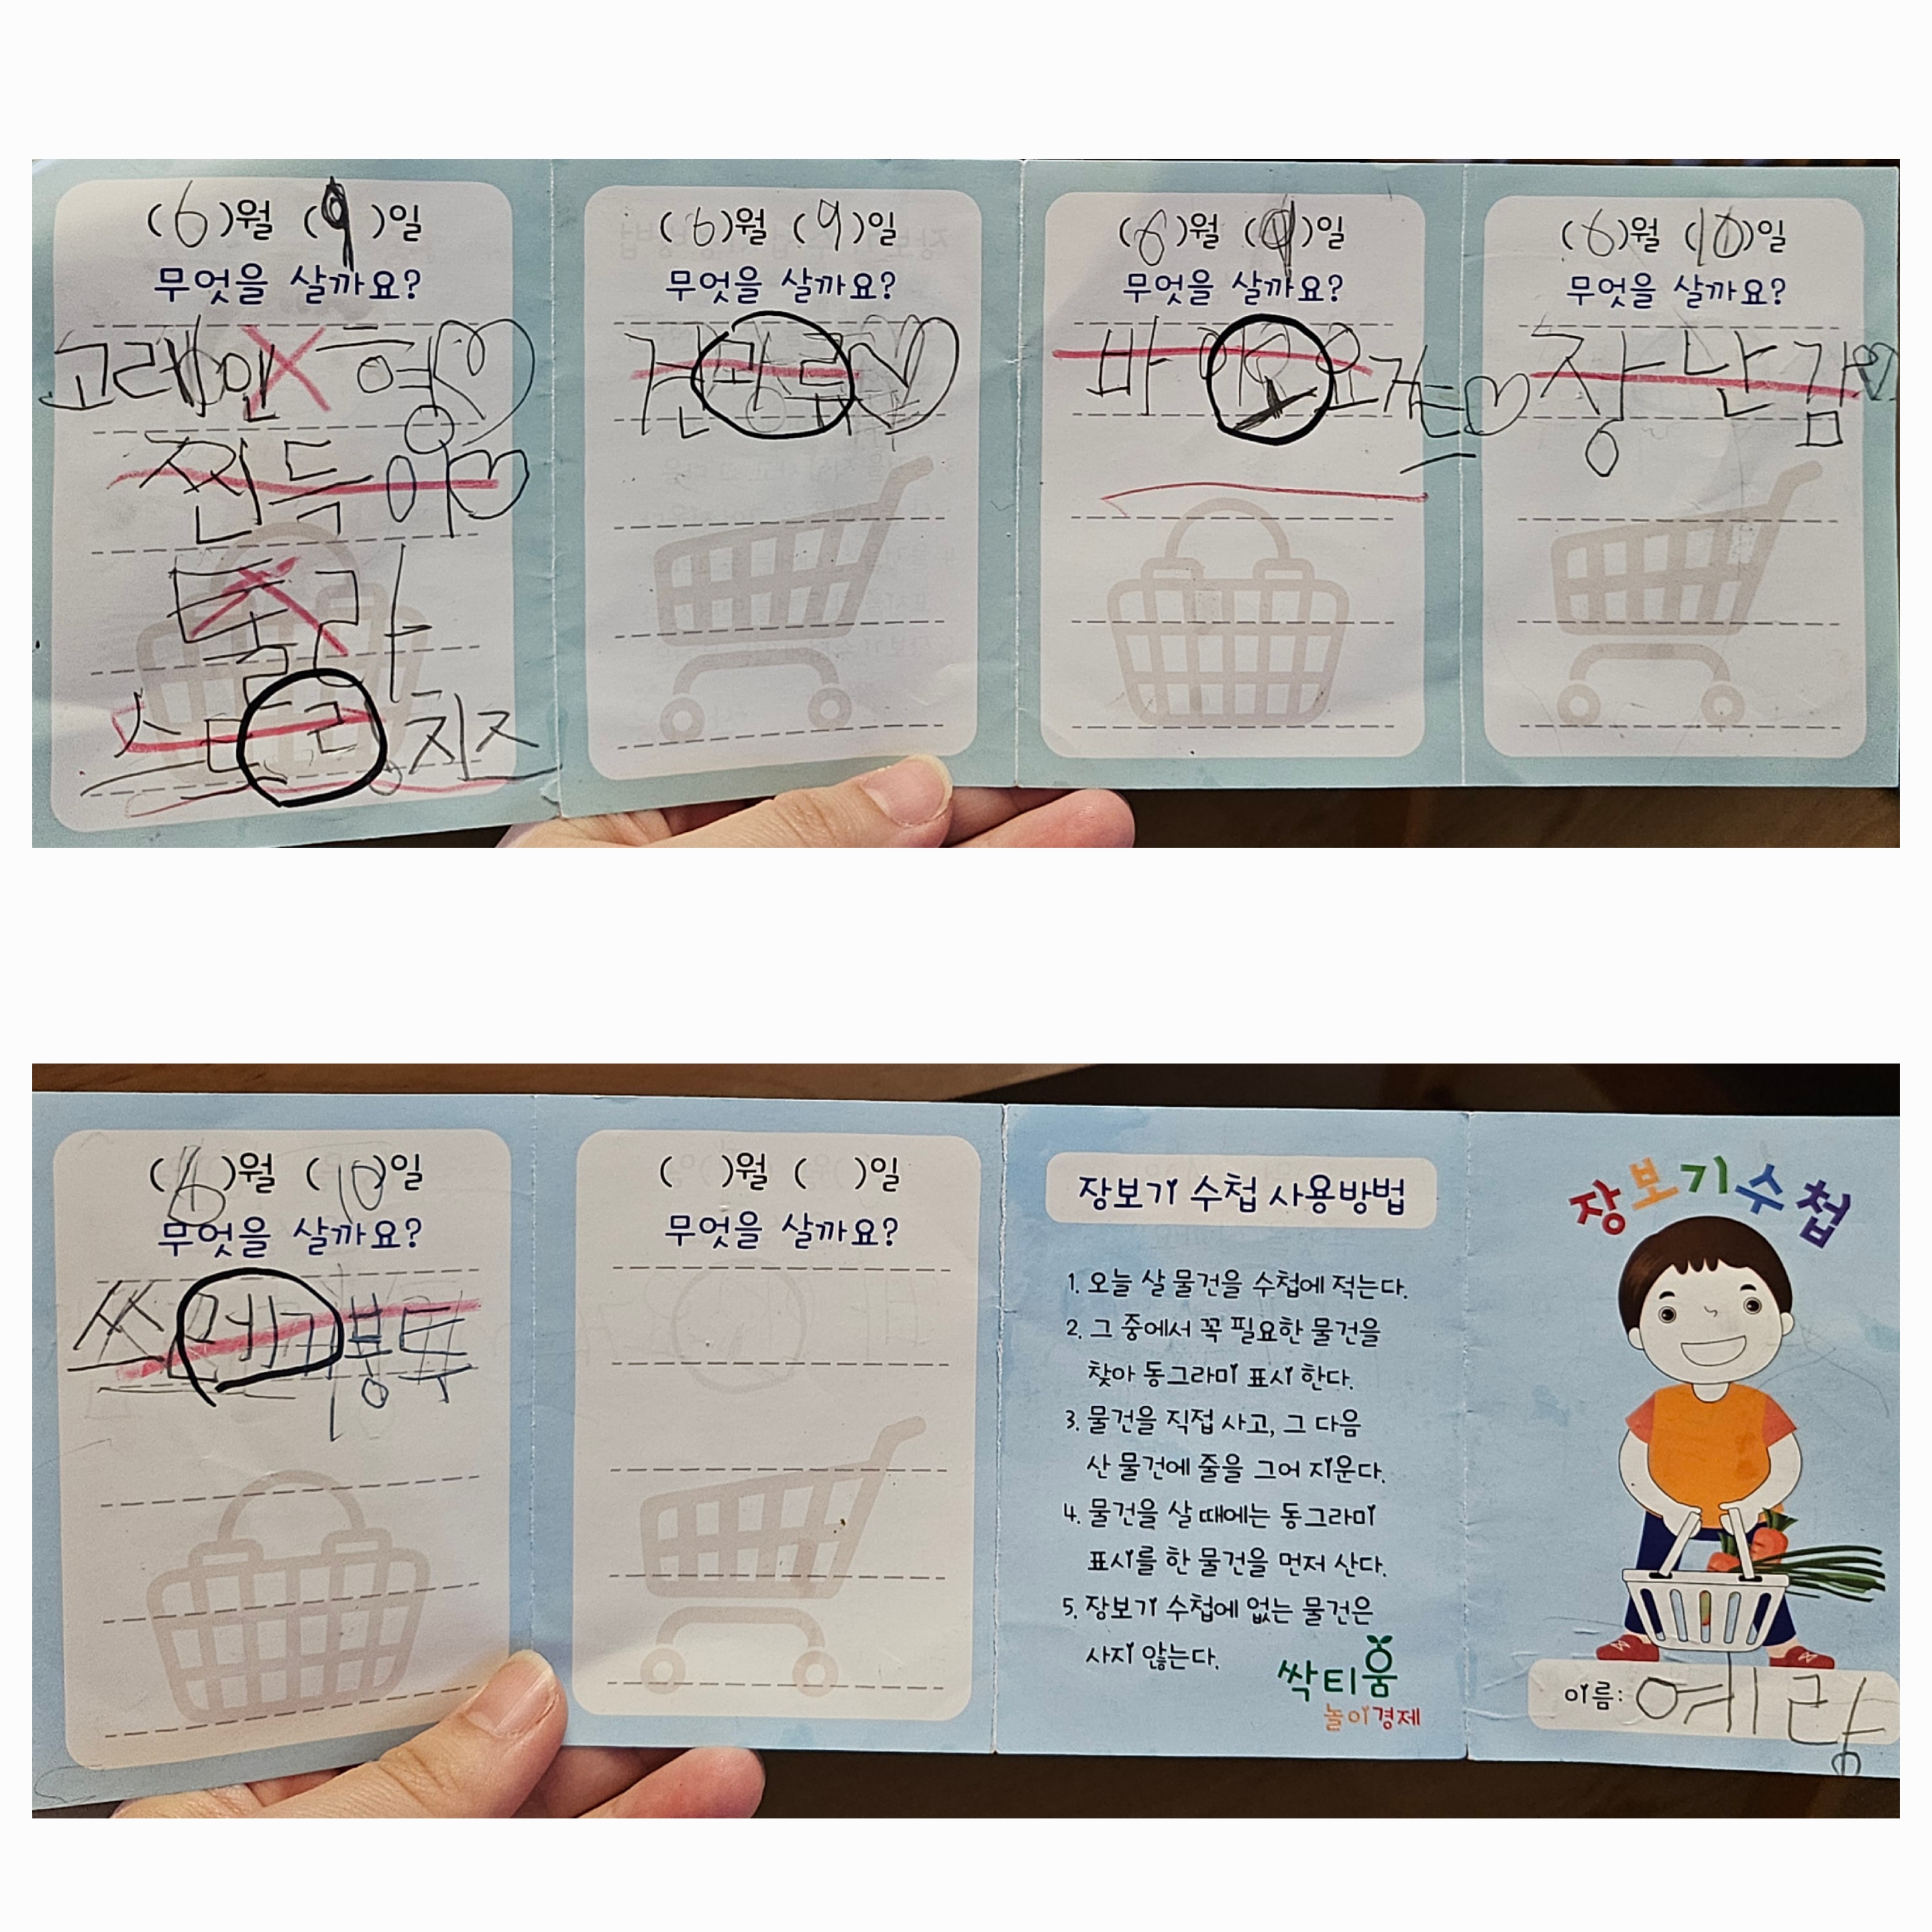 (6)월 (9)일
무엇을 살까요?
고래인형
찐득이
스트링치즈
(6)월 (9)일
무엇을 살까요?
(6)월 (9)일
무엇을 살까요?
바
(6)월 (10)일
무엇을 살까요?
장난감
(6)월 (10)일
무엇을 살까요?
쓰레기봉투
( )월 ( )일
무엇을 살까요?
장보기 수첩 사용방법
1. 오늘 살 물건을 수첩에 적는다.
2. 그 중에서 꼭 필요한 물건을
찾아 동그라미 표시 한다.
3. 물건을 직접 사고, 그 다음
산 물건에 줄을 그어 지운다.
4. 물건을 살 때에는 동그라미
표시를 한 물건을 먼저 산다.
5. 장보기 수첩에 없는 물건은
사지 않는다.
싹티움
놀이경제
장보기수첩
이름: 예랑